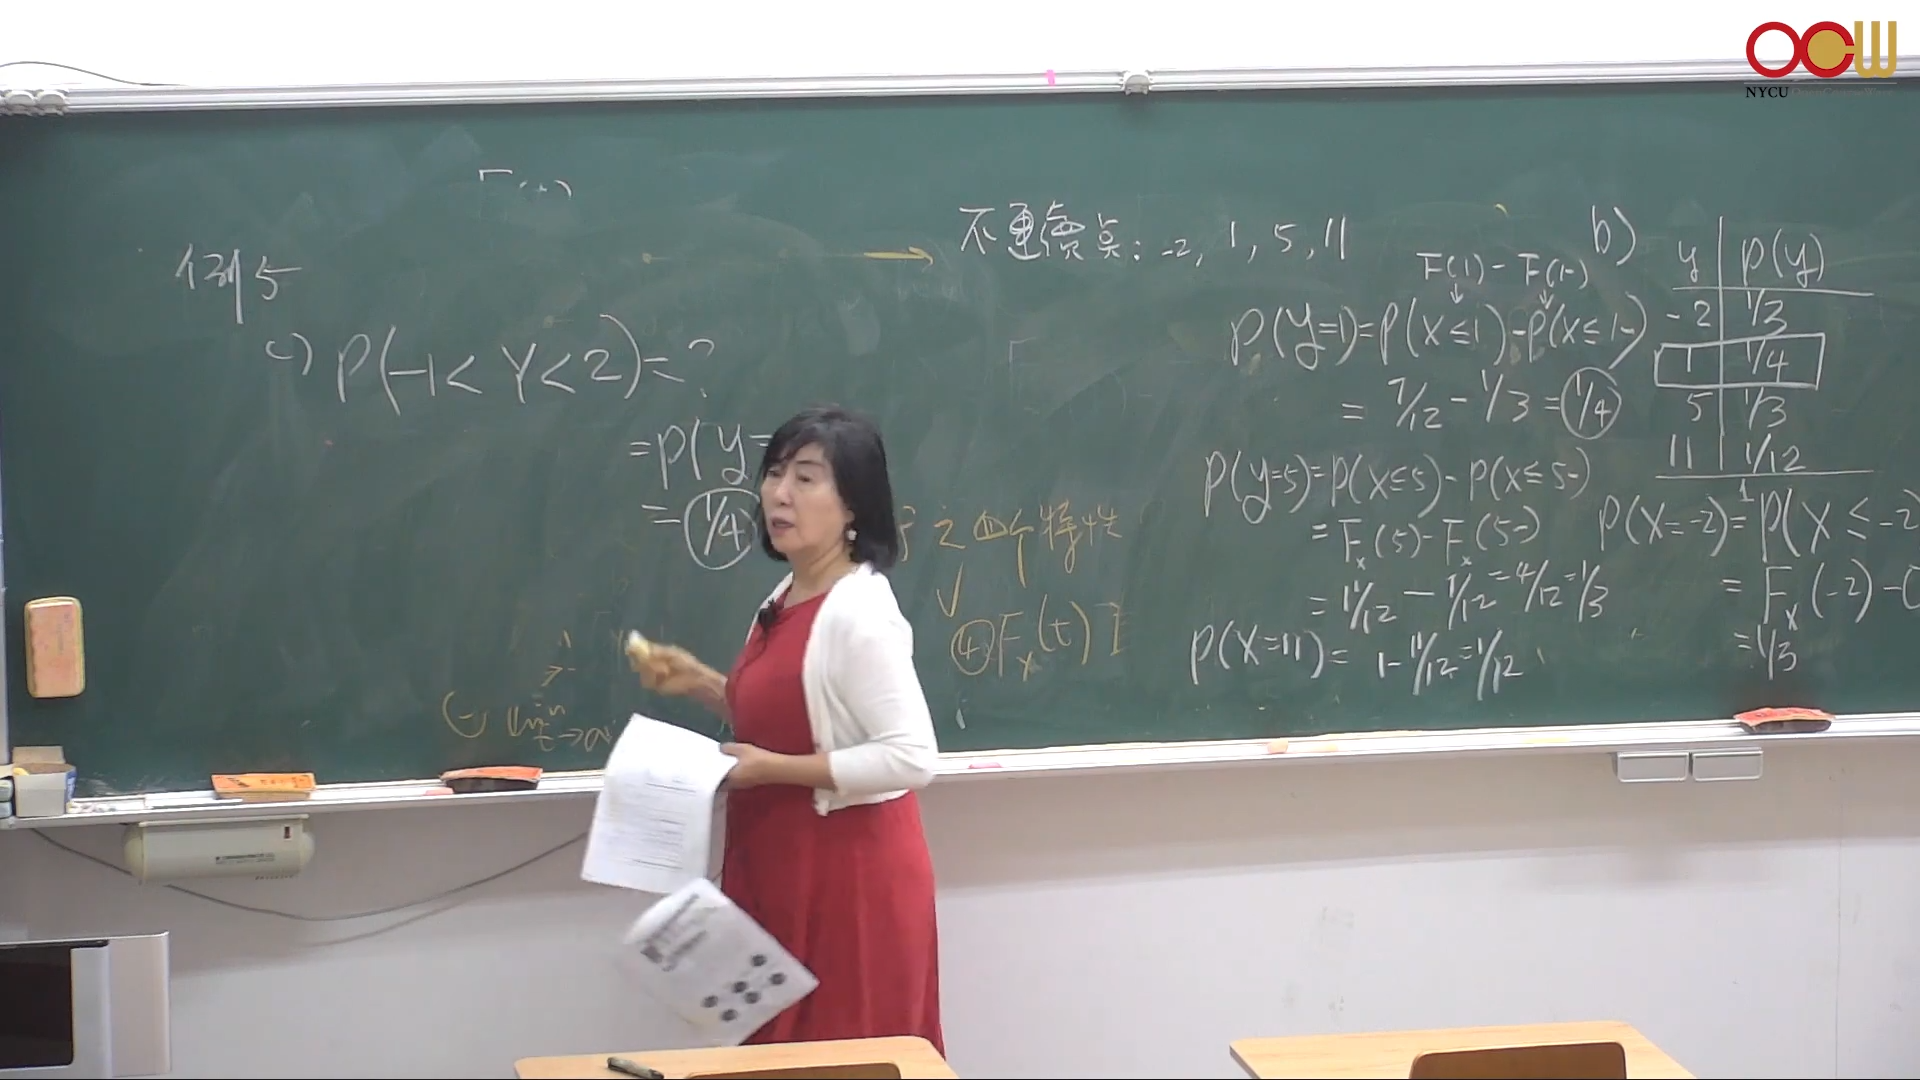 OCW
NYCU
例5
c) P(-1< Y<2)=?
=P(Y=
= 1/4
之四个特性
④ Fx(t)
lim
t→a
不連續點: -2, 1, 5, 11
F(1) - F(1-)
P(Y=1)=P(X≤1)-P(X≤1-)
= 7/12 - 1/3 = 1/4
P(Y=5)=P(X≤5)- P(X≤5-)
= Fx(5)- Fx(5-)
= 11/12 - 7/12 = 4/12 = 1/3
P(X=11)= 1-11/12=1/12
b)
y P(y)
-2 1/3
1 1/4
5 1/3
11 1/12
1
P(X=-2)= P(X ≤ -2
= Fx(-2)-
=1/3